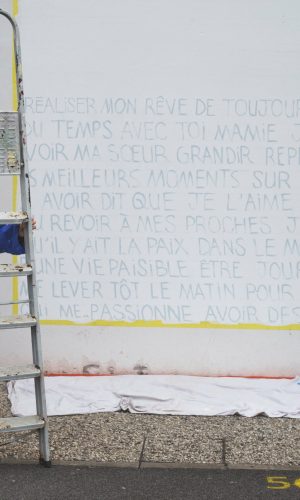 RÉALISER MON RÊVE DE TOUJOU
DU TEMPS AVEC TOI MAMIE
VOIR MA SŒUR GRANDIR REP
MEILLEURS MOMENTS SUR
AVOIR DIT QUE JE L'AIME
REVOIR À MES PROCHES J
QU'IL Y AIT LA PAIX DANS LE M
UNE VIE PAISIBLE ÊTRE JOU
LEVER TÔT LE MATIN POUR
ME PASSIONNE AVOIR DES